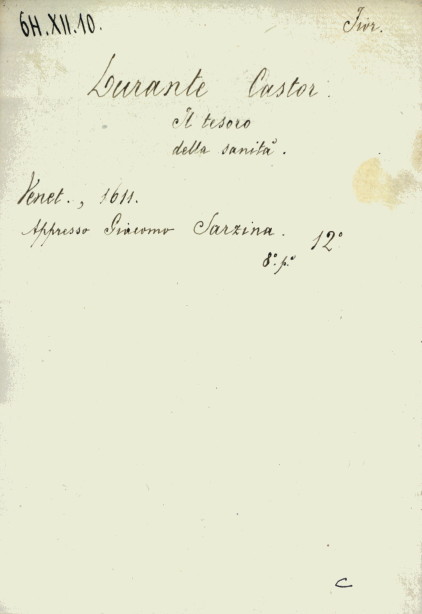 6H.XII.10.
Fior.
Durante Castor.
Il tesoro
della sanità.
Venet., 1611.
Appresso Giacomo Sarzina. 12°
8.° p.°
C